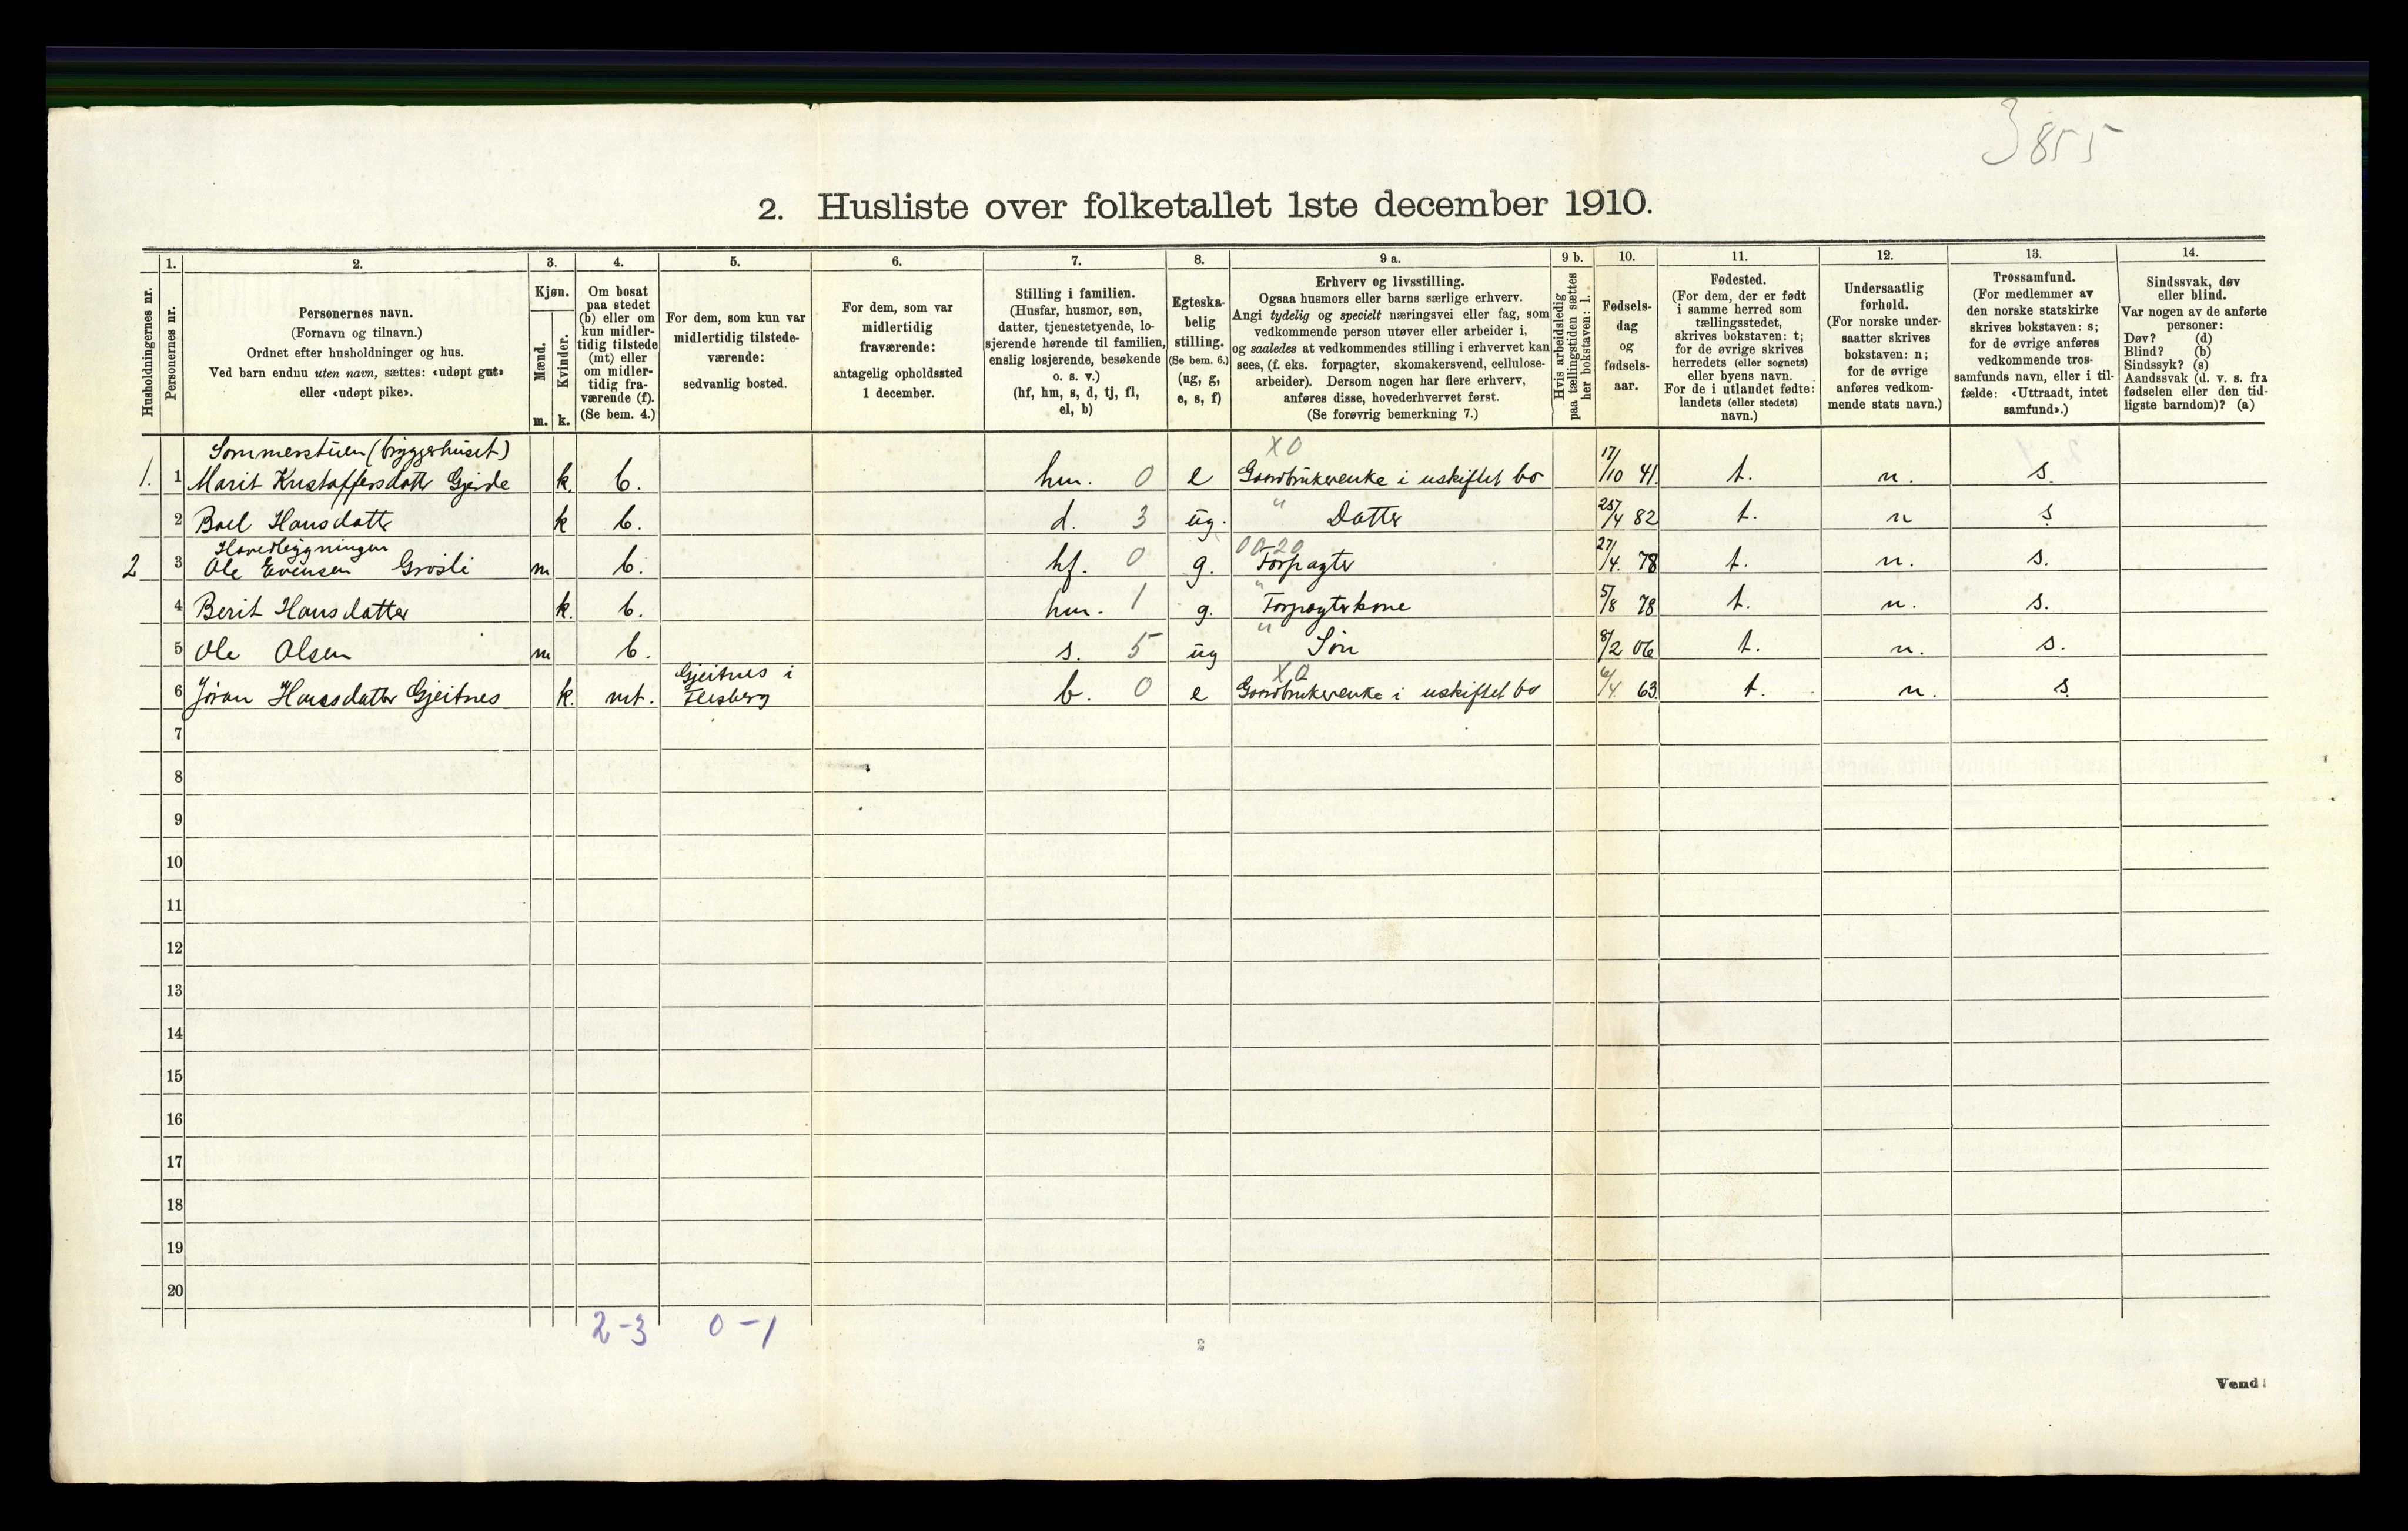 3855
2. Husliste over folketallet 1ste december 1910.
Husholdningernes nr.
1.
Personernes nr.
2.
Personernes navn.
(Fornavn og tilnavn.)
Ordnet efter husholdninger og hus.
Ved barn endnu uten navn, sættes: «udøpt gut»
eller «udøpt pike».
3.
Kjøn.
Mænd.
Kvinder.
m. k.
4.
Om bosat
paa stedet
(b) eller om
kun midler-
tidig tilstede
(mt) eller
om midler-
tidig fra-
værende (f).
(Se bem. 4.)
5.
For dem, som kun var
midlertidig tilstede-
værende:
sedvanlig bosted.
6.
For dem, som var
midlertidig
fraværende:
antagelig opholdssted
1 december.
7.
Stilling i familien.
(Husfar, husmor, søn,
datter, tjenestetyende, lo-
sjerende hørende til familien,
enslig losjerende, besøkende
o. s. v.)
(hf, hm, s, d, tj, fl,
el, b)
8.
Egteska-
belig
stilling.
(Se bem. 6.)
(ug, g,
e, s, f)
9 a.
Erhverv og livsstilling.
Ogsaa husmors eller barns særlige erhverv.
Angi tydelig og specielt næringsvei eller fag, som
vedkommende person utøver eller arbeider i,
og saaledes at vedkommendes stilling i erhvervet kan
sees, (f. eks. forpagter, skomakersvend, cellulose-
arbeider). Dersom nogen har flere erhverv,
anføres disse, hovederhvervet først.
(Se forøvrig bemerkning 7.)
9 b.
Hvis arbeidsledig
paa tællingstiden sættes
her bokstaven: l.
10.
Fødsels-
dag
og
fødsels-
aar.
11.
Fødested.
(For dem, der er født
i samme herred som
tællingsstedet,
skrives bokstaven: t;
for de øvrige skrives
herredets (eller sognets)
eller byens navn.
For de i utlandet fødte:
landets (eller stedets)
navn.)
12.
Undersaatlig
forhold.
(For norske under-
saatter skrives
bokstaven: n;
for de øvrige
anføres vedkom-
mende stats navn.)
13.
Trossamfund.
(For medlemmer av
den norske statskirke
skrives bokstaven: s;
for de øvrige anføres
vedkommende tros-
samfunds navn, eller i til-
fælde: «Uttraadt, intet
samfund».)
14.
Sindssvak, døv
eller blind.
Var nogen av de anførte
personer:
Døv? (d)
Blind? (b)
Sindssyk? (s)
Aandssvak (d. v. s. fra
fødselen eller den tid-
ligste barndom)? (a)
Sommerstuen (bryggerhuset) X0
1. 1 Marit Kristoffersdatter Gjerde k. b. hm. 0 e Gaardbrukerenke i uskiftet bo 17/10 41. t. n. s.
2 Boel Hansdatter k b. d. 3 ug. " Datter 25/4 82 t. n s
Hovedbygningen 00-20
2 3 Ole Evensen Grosli m b. hf. 0 g. Forpagter 27/4. 78 t. n. s.
4 Berit Hansdatter k. b. hm. 1 g. " Forpagterkone 5/8 78 t. n. s.
5 Ole Olsen m b. s. 5 ug " Søn 8/2 06 t. n. s.
Gjeitnes i X0
6 Jøran Hansdatter Gjeitnes k. mt. Flesberg b. 0 e Gaardbrukerenke i uskiftet bo 6/4 63. t. n. s.
7
8
9
10
11
12
13
14
15
16
17
18
19
20
2-3 0-1
2
Vend!